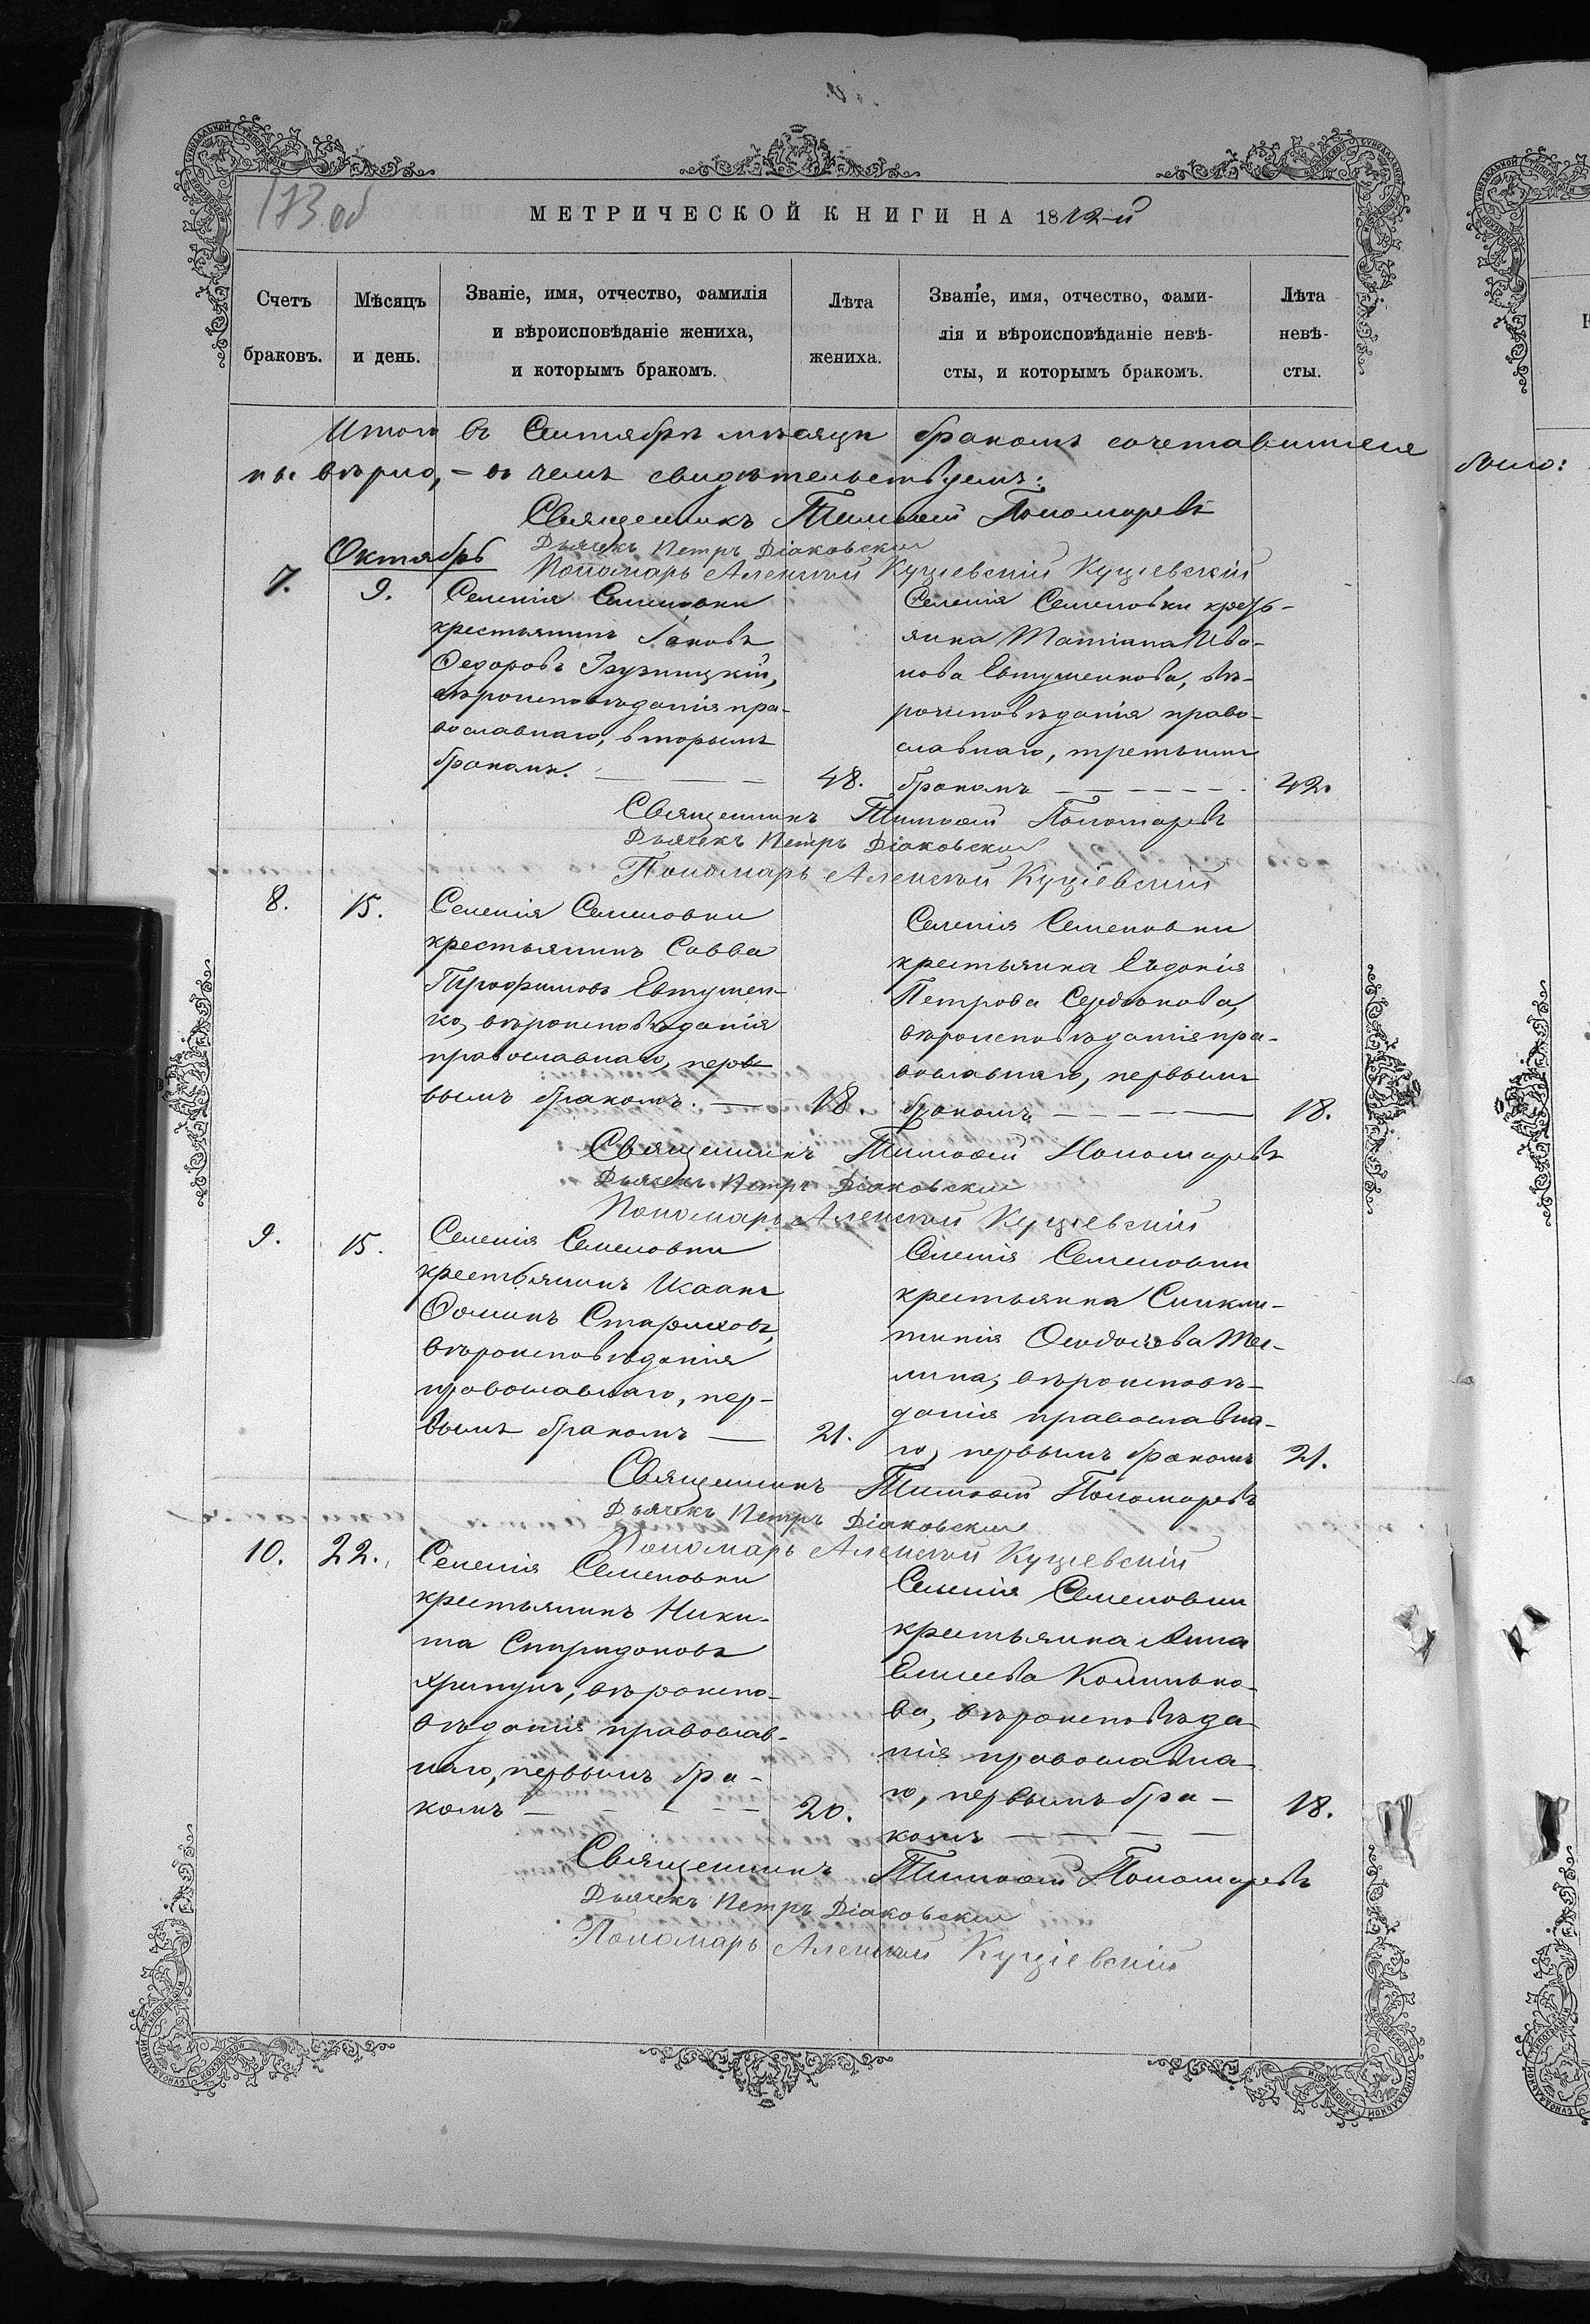 173 об
МЕТРИЧЕСКОЙ КНИГИ НА 1872-й
Счетъ браковъ.
Мѣсяцъ и день.
Званіе, имя, отчество, фамилія
и вѣроисповѣданіе жениха,
и которымъ бракомъ.
Лѣта жениха.
Званіе, имя, отчество, фами-
лія и вѣроисповѣданіе невѣ-
сты, и которымъ бракомъ.
Лѣта невѣ-
сты.
Итого въ Сентябрѣ мѣсяцѣ бракомъ сочетавшиеся
вѣрно, - въ чемъ свидѣтельствуемъ:
Священникъ Тимофей Пономаревъ
Дьячекъ Петръ Діаковскій
Октябрь
Пономарь Алексѣй Кущевскій Кущевскій
7.
9.
Селенія Семеновки
крестьянинъ Іаковъ
Федоровъ
вѣроисповѣданія пра-
вославнаго, вторымъ
бракомъ.
48.
Селенія Семеновки кресть-
янка Татіана Ива-
нова Евтушенкова, вѣ-
роисповѣданія право-
славнаго, третьимъ
бракомъ
42.
Священникъ Тимофей Пономаревъ
Дьячекъ Петръ Діаковскій
Пономарь Алексѣй Кущіевскій
8.
15.
Селенія Семеновки
крестьянинъ Савва
Трофимовъ Евтушен-
ко, вѣроисповѣданія
православнаго, перв
вымъ бракомъ.
18.
Селенія Семеновки
крестьянка Евдокія
Петрова Сердюкова,
вѣроисповѣданія пра-
вославнаго, первымъ
бракомъ
18.
Священникъ Тимофей Пономаревъ
Дьячекъ Петръ Діаковскій
Пономарь Алексѣй Кущевскій
9.
15.
Селенія Семеновки
крестьянинъ Исаакъ
Фоминъ Стариковъ,
вѣроисповѣданія
православнаго, пер-
вымъ бракомъ
21.
Селенія Семеновки
крестьянка Синкли-
тикія Феодосіева
вѣроисповѣ-
данія православна-
го, первымъ бракомъ
21.
Священникъ Тимофей Пономаревъ
Дьячекъ Петръ Діаковскій
Пономарь Алексѣй Кущевскій
10.
22.
Селенія Семеновки
крестьянинъ Ники-
та Спиридоновъ
Хрипунъ, вѣроиспо-
вѣданія православ-
наго, первымъ бра-
комъ
20.
Селенія Семеновки
крестьянка Анна
Елисеева
ва, вѣроисповѣда-
нія православна-
го, первымъ бра-
комъ
18.
Священникъ Тимофей Пономаревъ
Дьячекъ Петръ Діаковскій
Пономарь Алексѣй Кущіевскій
было: